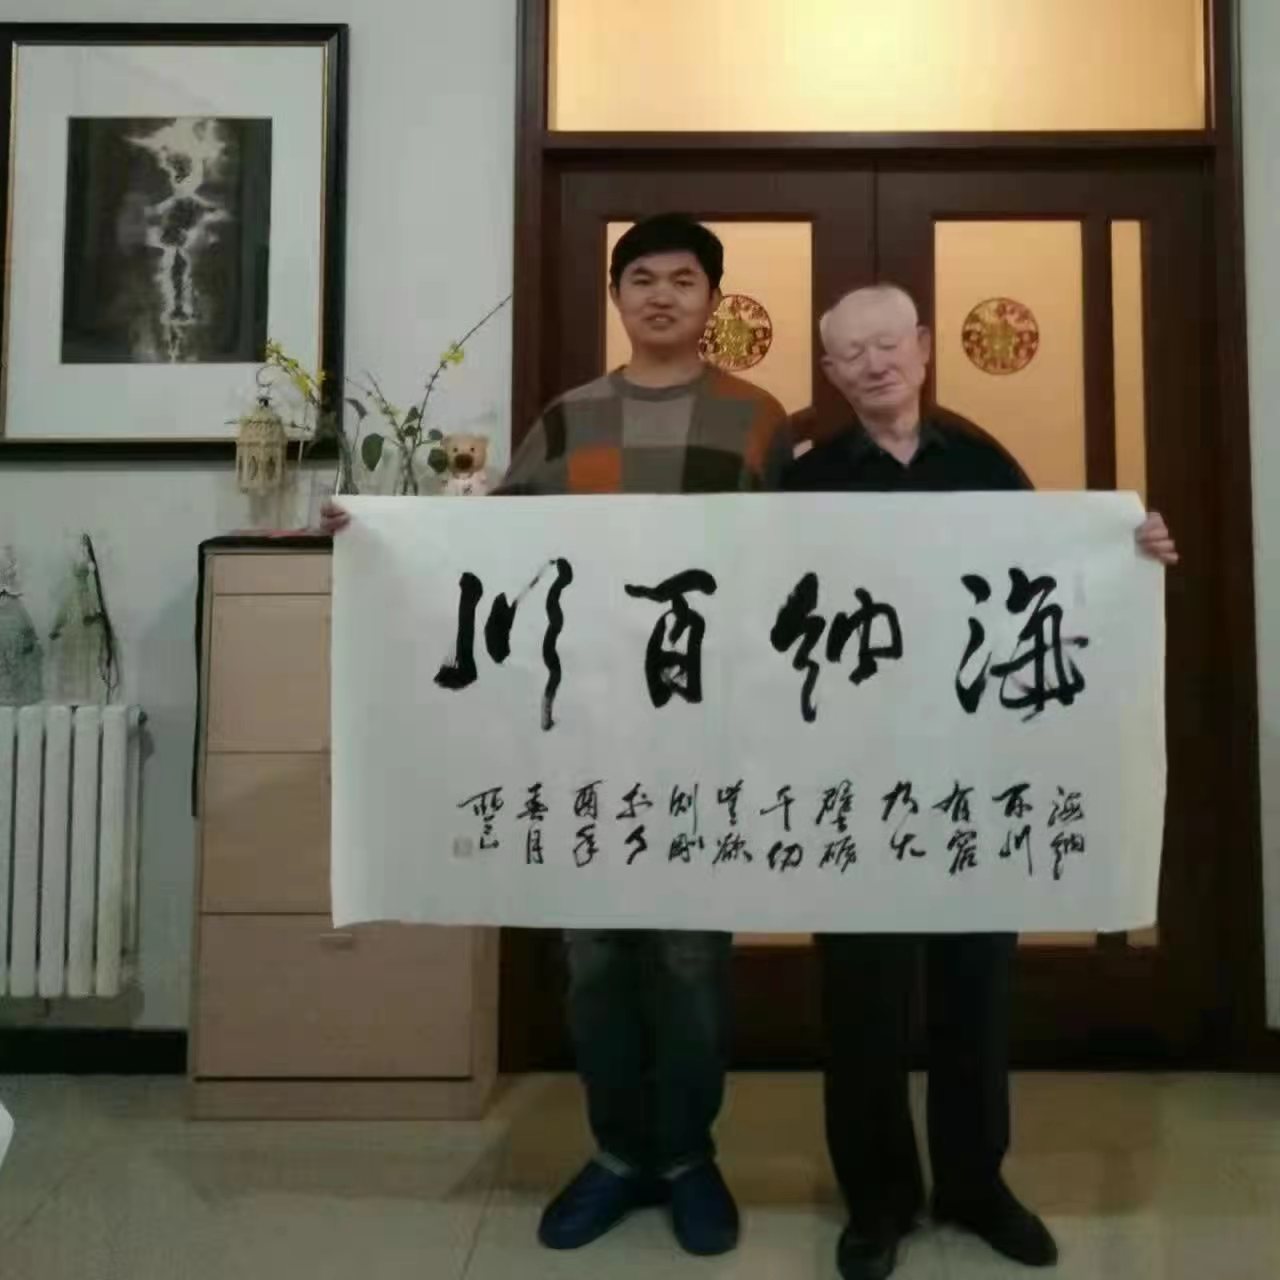 海纳百川
海纳
百川
有容
乃大
壁砺
千仞
无欲
则刚
酉年
春月